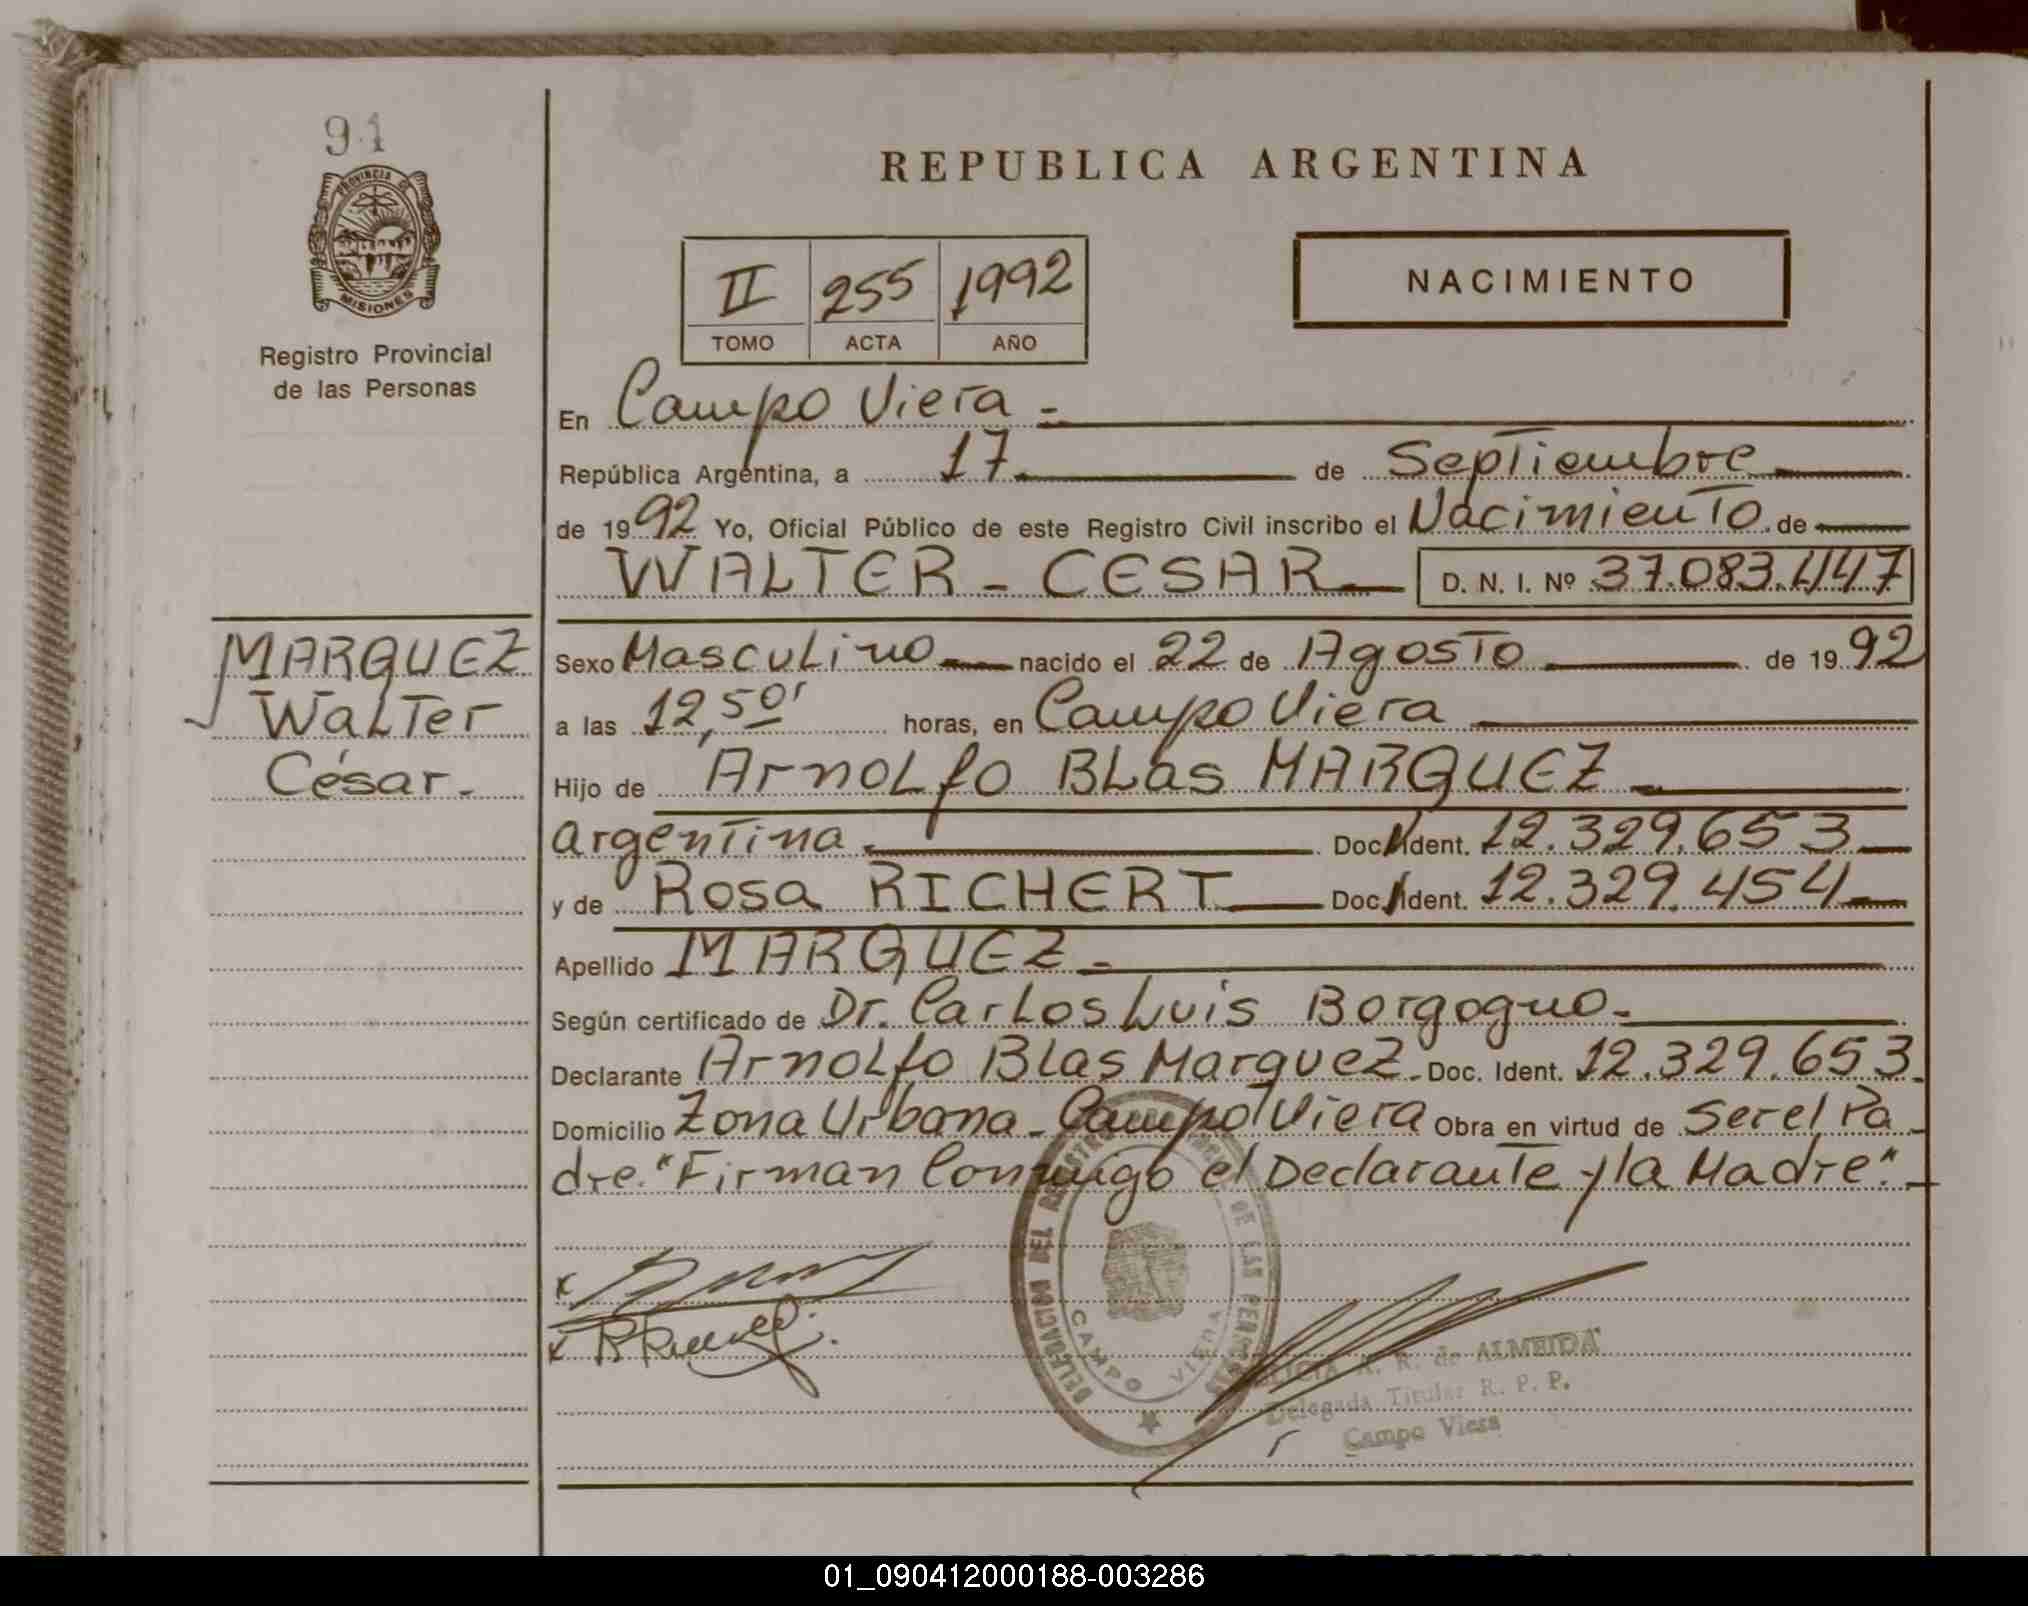 91
PROVINCIA DE
MISIONES
Registro Provincial
de las Personas
REPUBLICA ARGENTINA
II 255 1992
TOMO ACTA AÑO
NACIMIENTO
En Campo Viera -
República Argentina, a 17. de Septiembre
de 1992 Yo, Oficial Público de este Registro Civil inscribo el Nacimiento de
WALTER - CESAR D. N. I. Nº 37.083.447
MARQUEZ
Walter
César.
Sexo Masculino nacido el 22 de Agosto de 1992
a las 12,50' horas, en Campo Viera
Hijo de Arnolfo Blas MARQUEZ
argentina. Doc. Ident. 12.329.653
y de Rosa RICHERT Doc. Ident. 12.329.454
Apellido MARQUEZ -
Según certificado de Dr. Carlos Luis Borgogno.
Declarante Arnolfo Blas Marquez. Doc. Ident. 12.329.653.
Domicilio Zona Urbana - Campo Viera Obra en virtud de Ser el Pa
dre. "Firman Conmigo el Declarante y la Madre".
DELEGACION DEL REGISTRO DE LAS PERSONAS
CAMPO VIERA
A. R. de ALMEIDA
Delegada Titular R. P. P.
Campo Viera
01_090412000188-003286